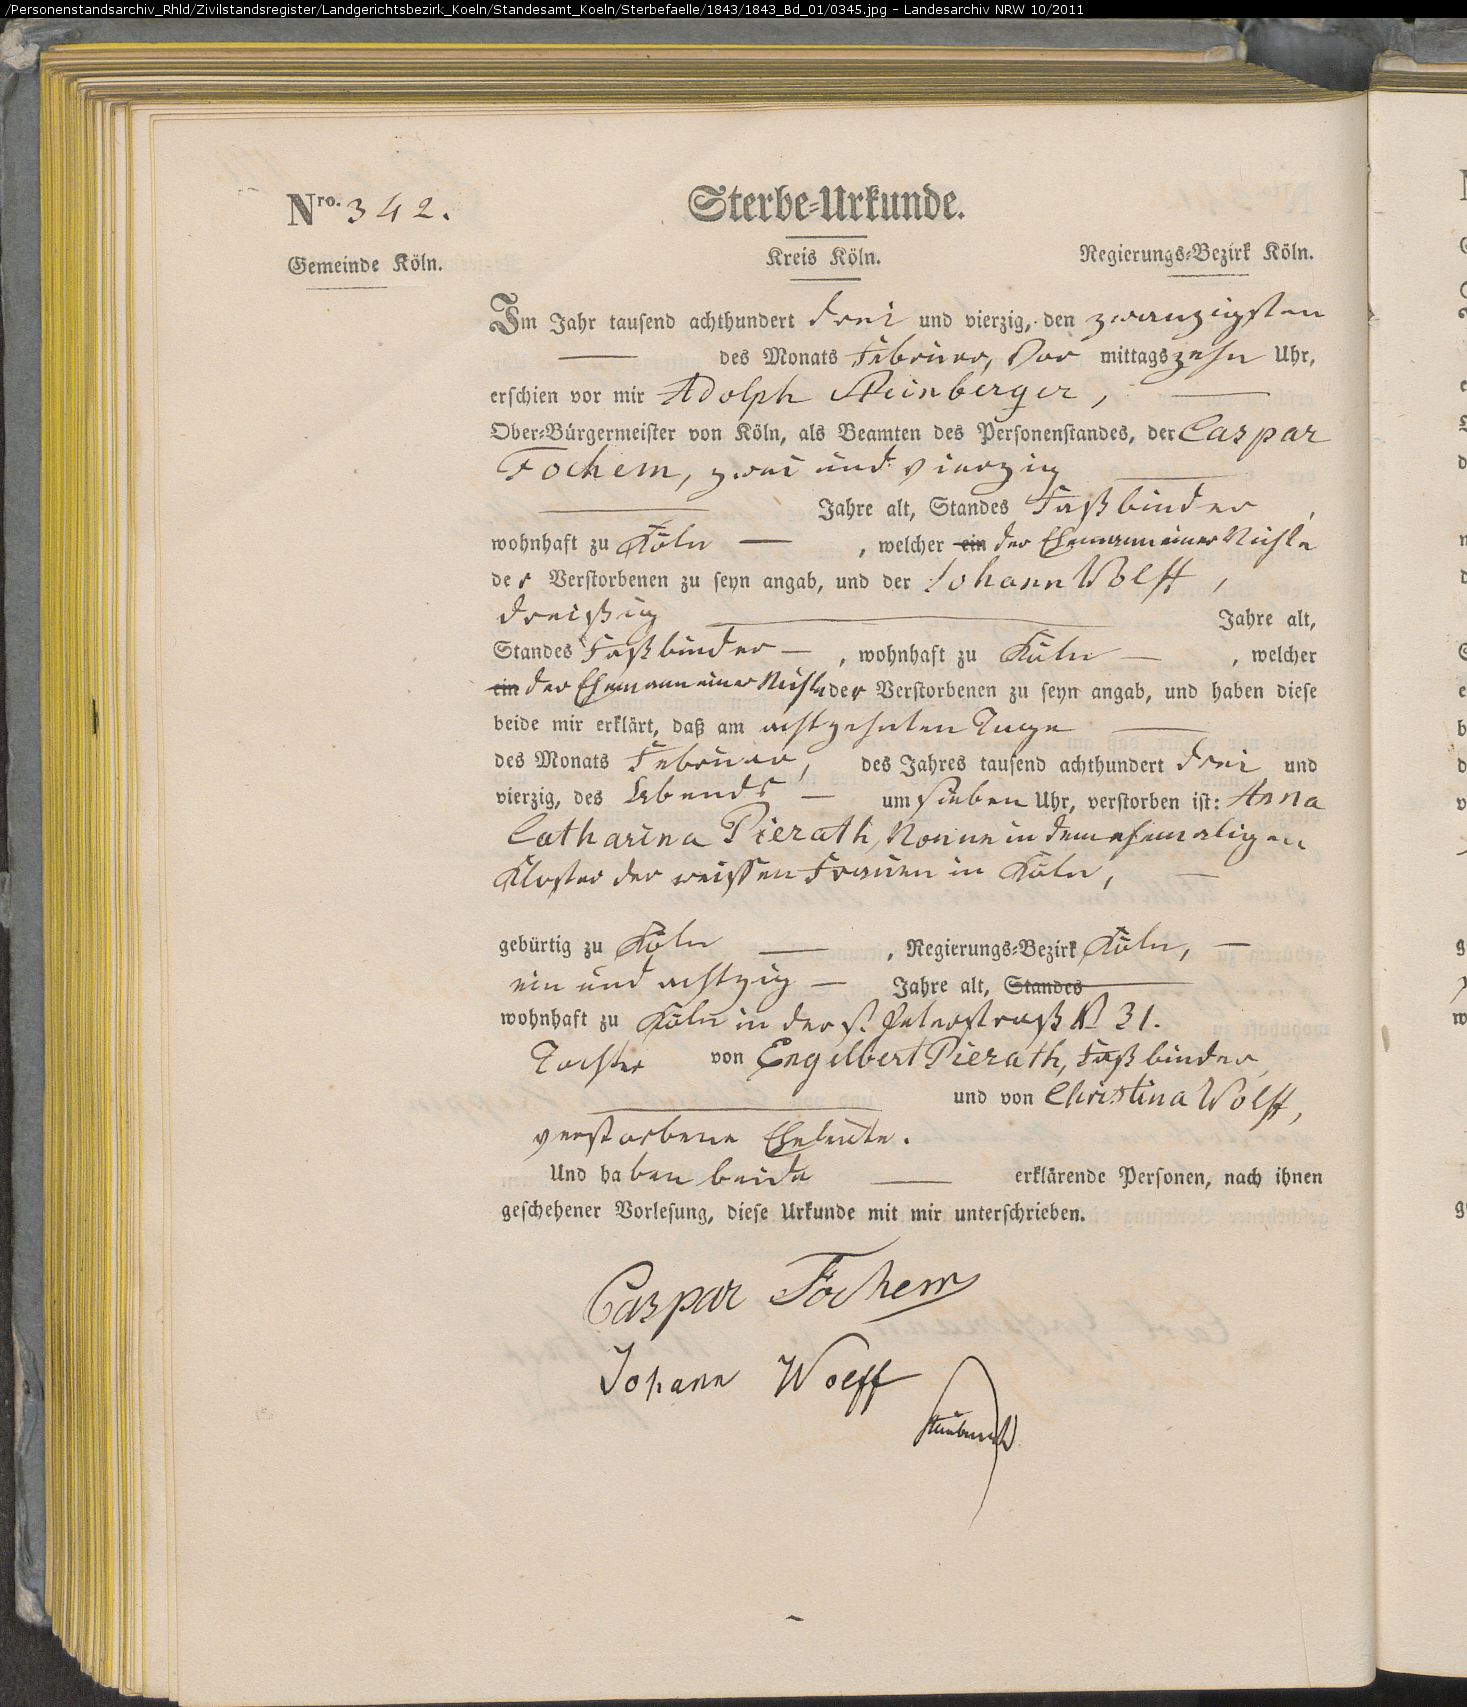 /Personenstandsarchiv_Rhld/Zivilstandsregister/Landgerichtsbezirk_Koeln/Standesamt_Koeln/Sterbefaelle/1843/1843_Bd_01/0345.jpg - Landesarchiv NRW 10/2011
Nro. 342.
Sterbe-Urkunde.
Gemeinde Köln. Kreis Köln. Regierungs-Bezirk Köln.
Im Jahr tausend achthundert drei und vierzig, den zwanzigsten
des Monats Februar, Vor mittags zehn Uhr,
erschien vor mir Adolph Steinberger,
Ober-Bürgermeister von Köln, als Beamten des Personenstandes, der Caspar
Fochem, zwei und vierzig
Jahre alt, Standes Faßbinder,
wohnhaft zu Köln, welcher ein der Ehemann einer Nichte
der Verstorbenen zu seyn angab, und der Johann Wolff,
dreißig Jahre alt,
Standes Faßbinder, wohnhaft zu Köln, welcher
ein der Ehemann einer Nichte der Verstorbenen zu seyn angab, und haben diese
beide mir erklärt, daß am achtzehnten Tage
des Monats Februar, des Jahres tausend achthundert drei und
vierzig, des Abends um sieben Uhr, verstorben ist: Anna
Catharina Pierath, Nonne in dem ehemaligen
Kloster der weissen Frauen in Köln,
gebürtig zu Köln, Regierungs-Bezirk Köln,
ein und achtzig Jahre alt, Standes
wohnhaft zu Köln in der St. Peterstraß No 31.
Tochter von Engelbert Pierath, Faßbinder,
und von Christina Wolff,
verstorbene Eheleute.
Und haben beide erklärende Personen, nach ihnen
geschehener Vorlesung, diese Urkunde mit mir unterschrieben.
Caspar Fochem
Johann Wolff
Steinberger